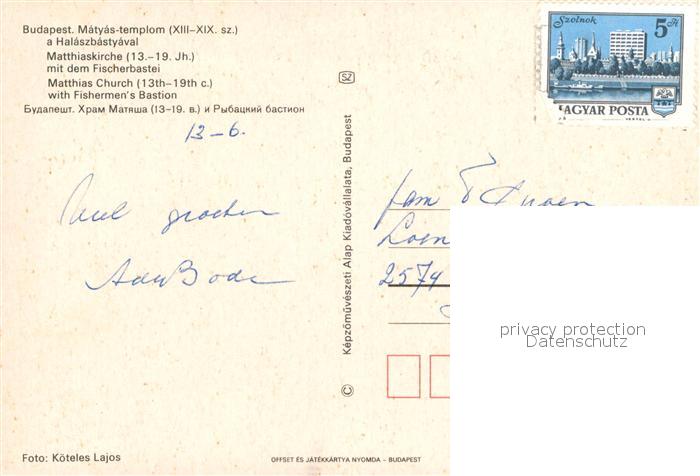 Budapest. Mátyás-templom (XIII–XIX. sz.)
a Halászbástyával
Matthiaskirche (13.–19. Jh.)
mit dem Fischerbastei
Matthias Church (13th–19th c.)
with Fishermen's Bastion
Будапешт. Храм Матяша (13–19. в.) и Рыбацкий бастион
13-6.
Veel groeten
Foto: Köteles Lajos
SZ
© Képzőművészeti Alap Kiadóvállalata, Budapest
OFFSET ÉS JÁTÉKKÁRTYA NYOMDA – BUDAPEST
Szolnok
5 Ft
MAGYAR POSTA
fam
2574
privacy protection
Datenschutz